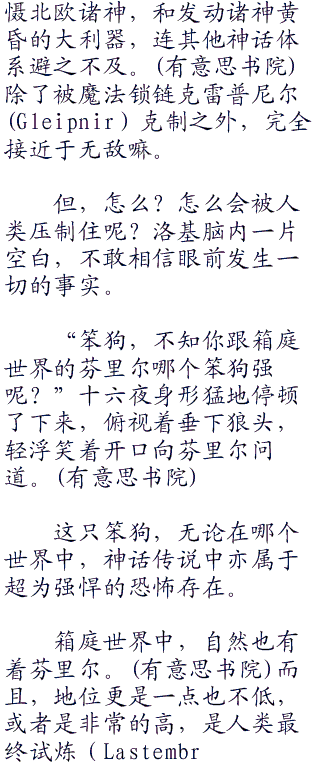 慑北欧诸神，和发动诸神黄
昏的大利器，连其他神话体
系避之不及。(有意思书院)
除了被魔法锁链克雷普尼尔
(Gleipnir）克制之外，完全
接近于无敌嘛。
但，怎么？怎么会被人
类压制住呢？洛基脑内一片
空白，不敢相信眼前发生一
切的事实。
“笨狗，不知你跟箱庭
世界的芬里尔哪个笨狗强
呢？”十六夜身形猛地停顿
了下来，俯视着垂下狼头，
轻浮笑着开口向芬里尔问
道。(有意思书院)
这只笨狗，无论在哪个
世界中，神话传说中亦属于
超为强悍的恐怖存在。
箱庭世界中，自然也有
着芬里尔。(有意思书院)而
且，地位更是一点也不低，
或者是非常的高，是人类最
终试炼（Lastembr